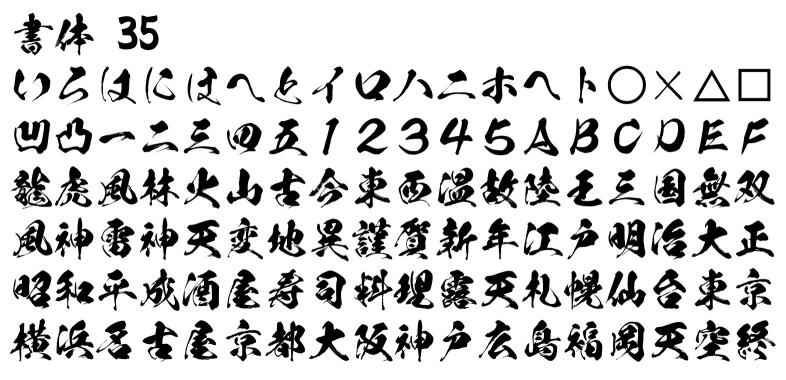 書体 35
いろはにほへとイロハニホヘト○×△□
凹凸一二三四五12345ABCDEF
龍虎風林火山古今東西温故陸王三国無双
風神雷神天変地異謹賀新年江戸明治大正
昭和平成酒屋寿司料理露天札幌仙台東京
横浜名古屋京都大阪神戸広島福岡天空終